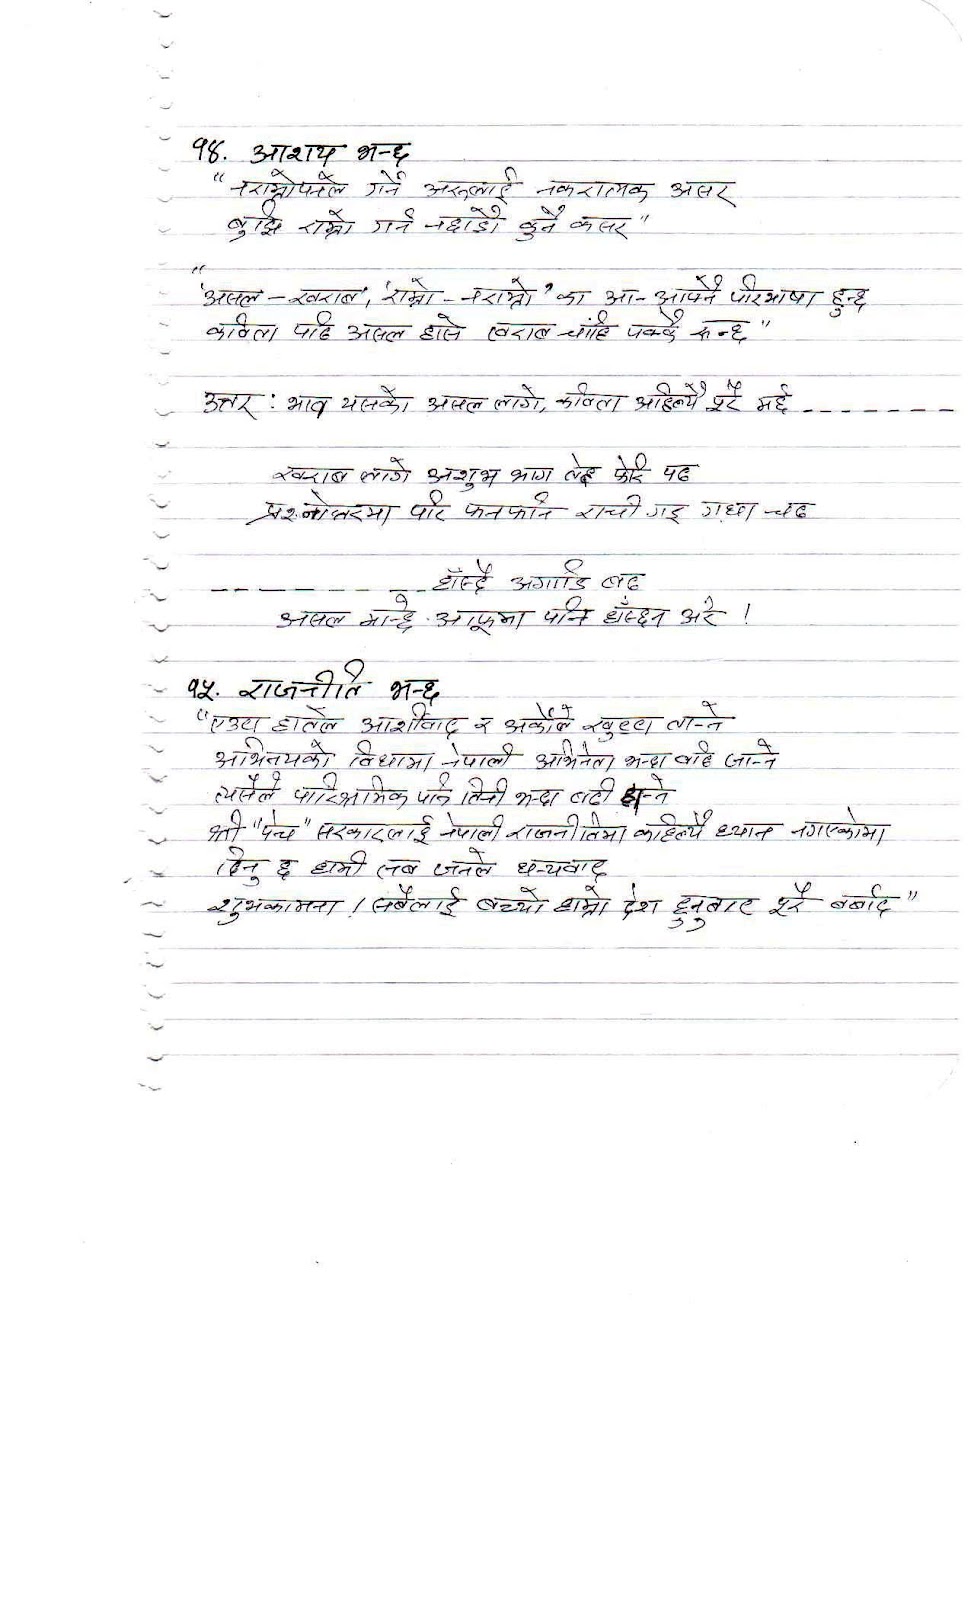 १४. आशय भन्छ
"नराम्रोपनले गर्ने अरुलाई नकरात्मक असर
बुझि राम्रो गर्न नछाडौं कुनै कसर"
"
'असल – खराब', 'राम्रो – नराम्रो' का आ- आफ्नै परिभाषा हुन्छ
कविता पढि असल हाँसे खराब चाँहि पक्कै रुन्छ"
उत्तर : भाव यसको असल लागे, कविता अहिल्यै पूरै मर्छ - - - - - - - -
खराब लागे अशुभ भाग लेइ फेरि पढ
प्रश्नोत्तरमा परि फनफनि राची गइ गधा चढ
- - - - - - - - हाँस्दै अगाडि बढ
असल मान्छे आफूमा पनि हाँस्छन अरे !
१५. राजनीति भन्छ
"एउटा हातले आशीर्वाद र अर्कोले खुट्टा तान्ने
अभिनयको विधामा नेपाली अभिनेता भन्दा बढि जान्ने
त्यसैले पारिश्रमिक पनि तिनी भन्दा बढी हान्ने
श्री "पेच" सरकारलाई नेपाली राजनीतिमा कहिल्यै ध्यान नगएकोमा
दिनु छ हामी सब जनले धन्यवाद
शुभकामना ! सबैलाई बच्यो हाम्रो देश हुनुबाट पूरै बर्बाद"